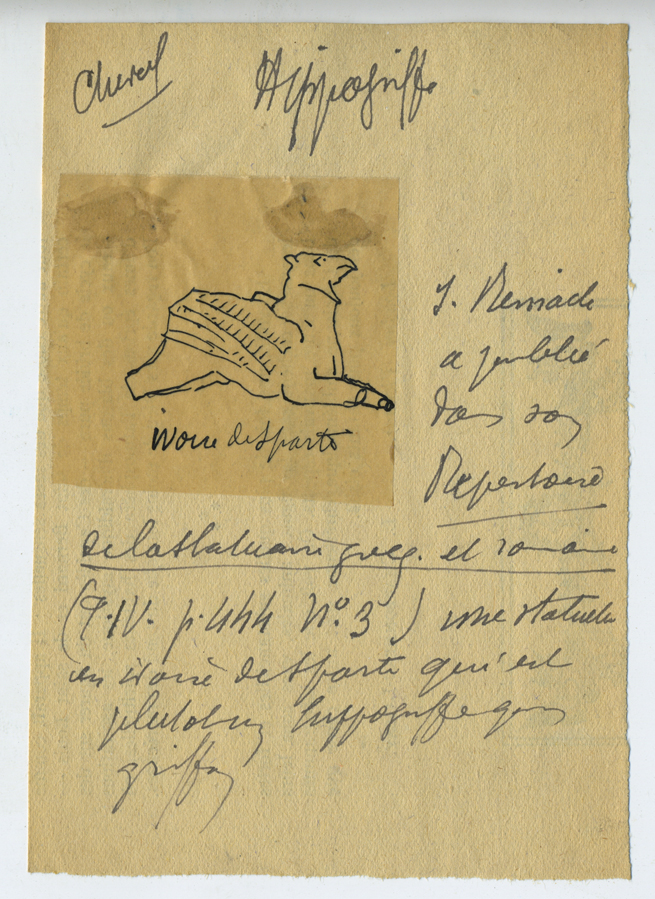 Cheval
Hippogriffe
ivoire de Sparte
S. Reinach
a publié
dans son
Repertoire
de la statuaire grecq. et romaine
(T. IV. p. 444 N° 3) une statuette
en ivoire de Sparte qui est
plutot un hippogriffe qu'un
griffon